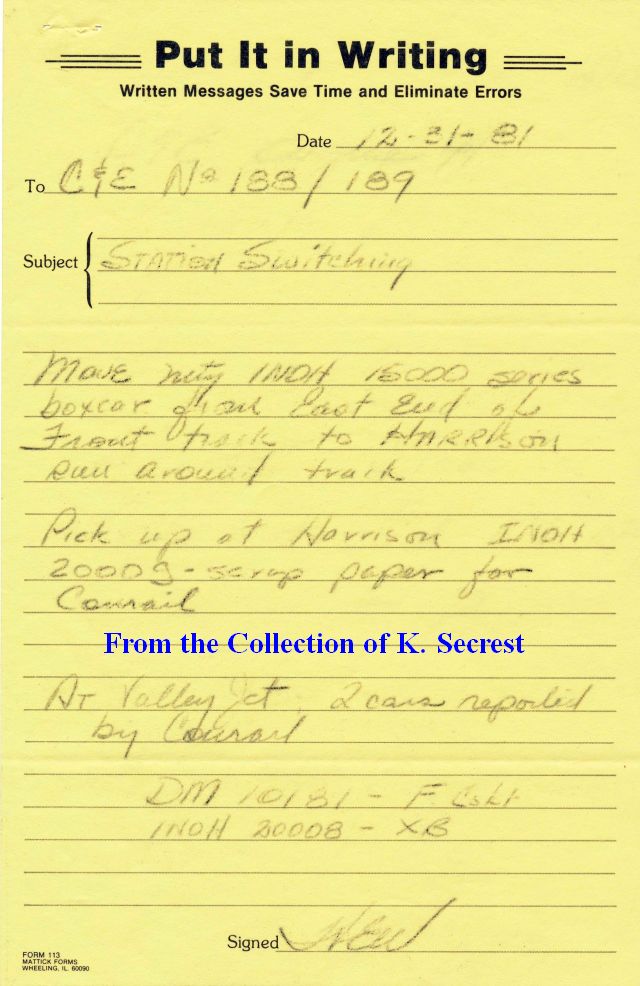 Put It in Writing
Written Messages Save Time and Eliminate Errors
Date 12-31-81
To C&E No 188/189
Subject Station Switching
Move mty INOH 15000 series
boxcar from East End of
Front track to HARRISON
run around track
Pick up at Harrison INOH
20009-scrap paper for
Conrail
From the Collection of K. Secrest
At Valley Jct, 2 cars reported
by Conrail
DM 10181 - F
INOH 20008 - XB
Signed
FORM 113
MATTICK FORMS
WHEELING, IL 60090